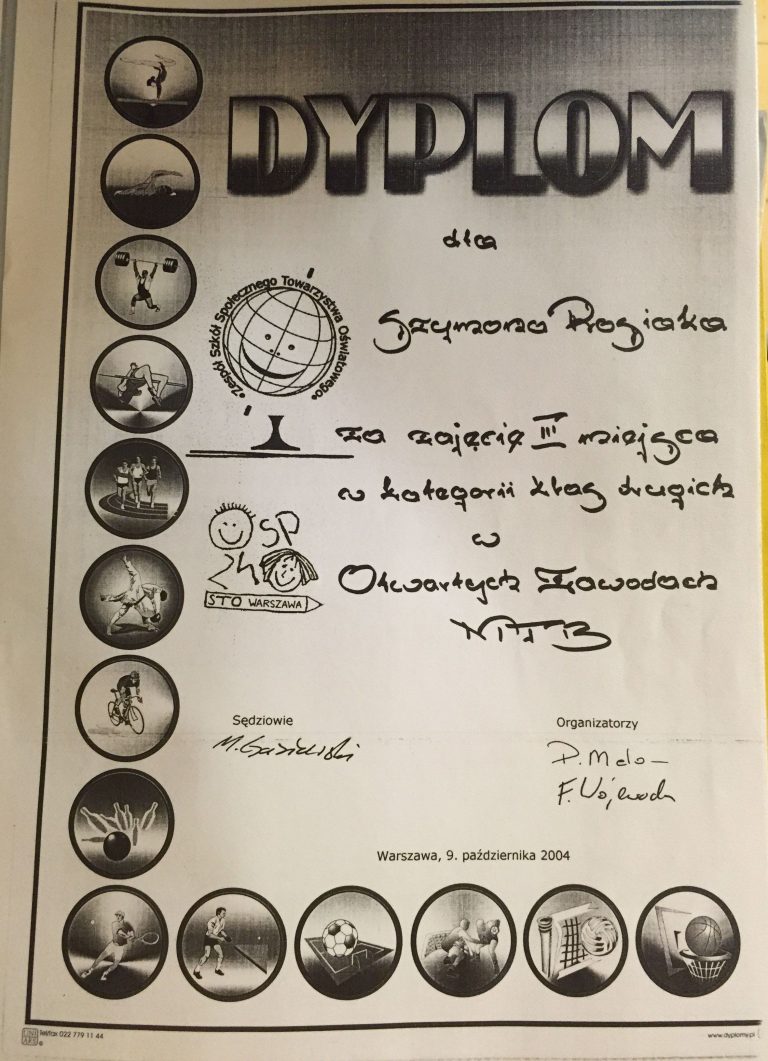 DYPLOM
dla
Zespół Szkół Społecznego Towarzystwa Oświatowego
Szymona Rogiaka
za zajęcie III miejsca
w kategorii klas drugich
w
OSP
STO WARSZAWA
Otwartych Zawodach
Sędziowie
Organizatorzy
Warszawa, 9. października 2004
Tel/fax 022 779 11 44
www.dyplomy.pl